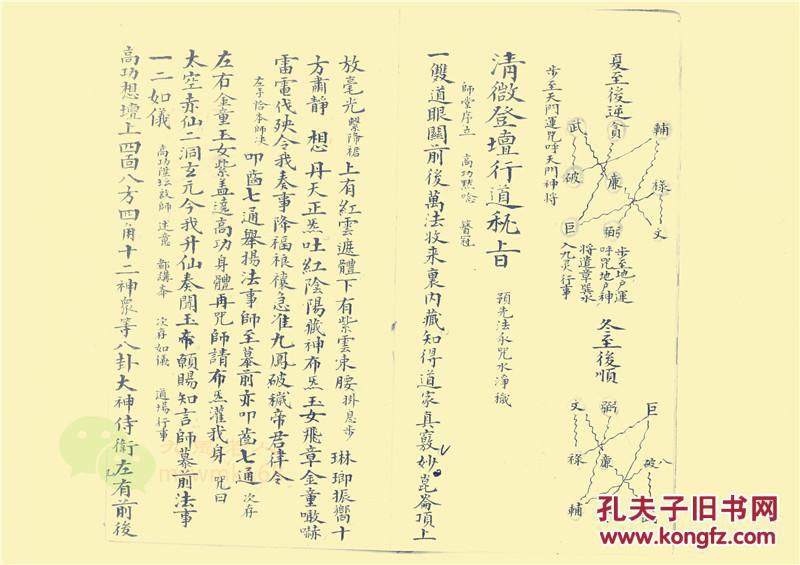 夏至後逆
輔
貪
武
祿
廉
破
文
弼
巨
步至天門運咒呼天門神將
步至地戶運
呼咒地戶神
將遣章巽水
入九灵行事
冬至後順
巨
弼
文
破
廉
祿
輔
清微登壇行道秘旨
預先法水咒水淨穢
師堂序立 高功默唸 簪冠
一雙道眼關前後萬法收来裏內藏知得道家真竅妙崑崙頂上
放毫光 繫降裙 上有紅雲遮體下有紫雲束腰 掛息步 琳瑯振響十
方肅静 想 丹天正炁吐紅陰陽藏神布炁玉女飛章金童嗷嚇
雷電伐殃令我奏事降福禳急准九鳳破穢帝君律令
左手恰本師决 叩齒七通舉揚法事師至幕前亦叩齒七通 次存
左右金童玉女紫盖遶高功身體再咒師請布炁灌我身 咒曰
太空赤仙二洞玄元今我升仙奏聞玉帝願賜知言師幕前法事
一二如儀 高功陞坛啟師 迬意 都講奉 次存如儀 道場行事
高功想壇上四面八方四角十二神眾等八卦大神侍衛左右前後
孔夫子旧书网
www.kongfz.com